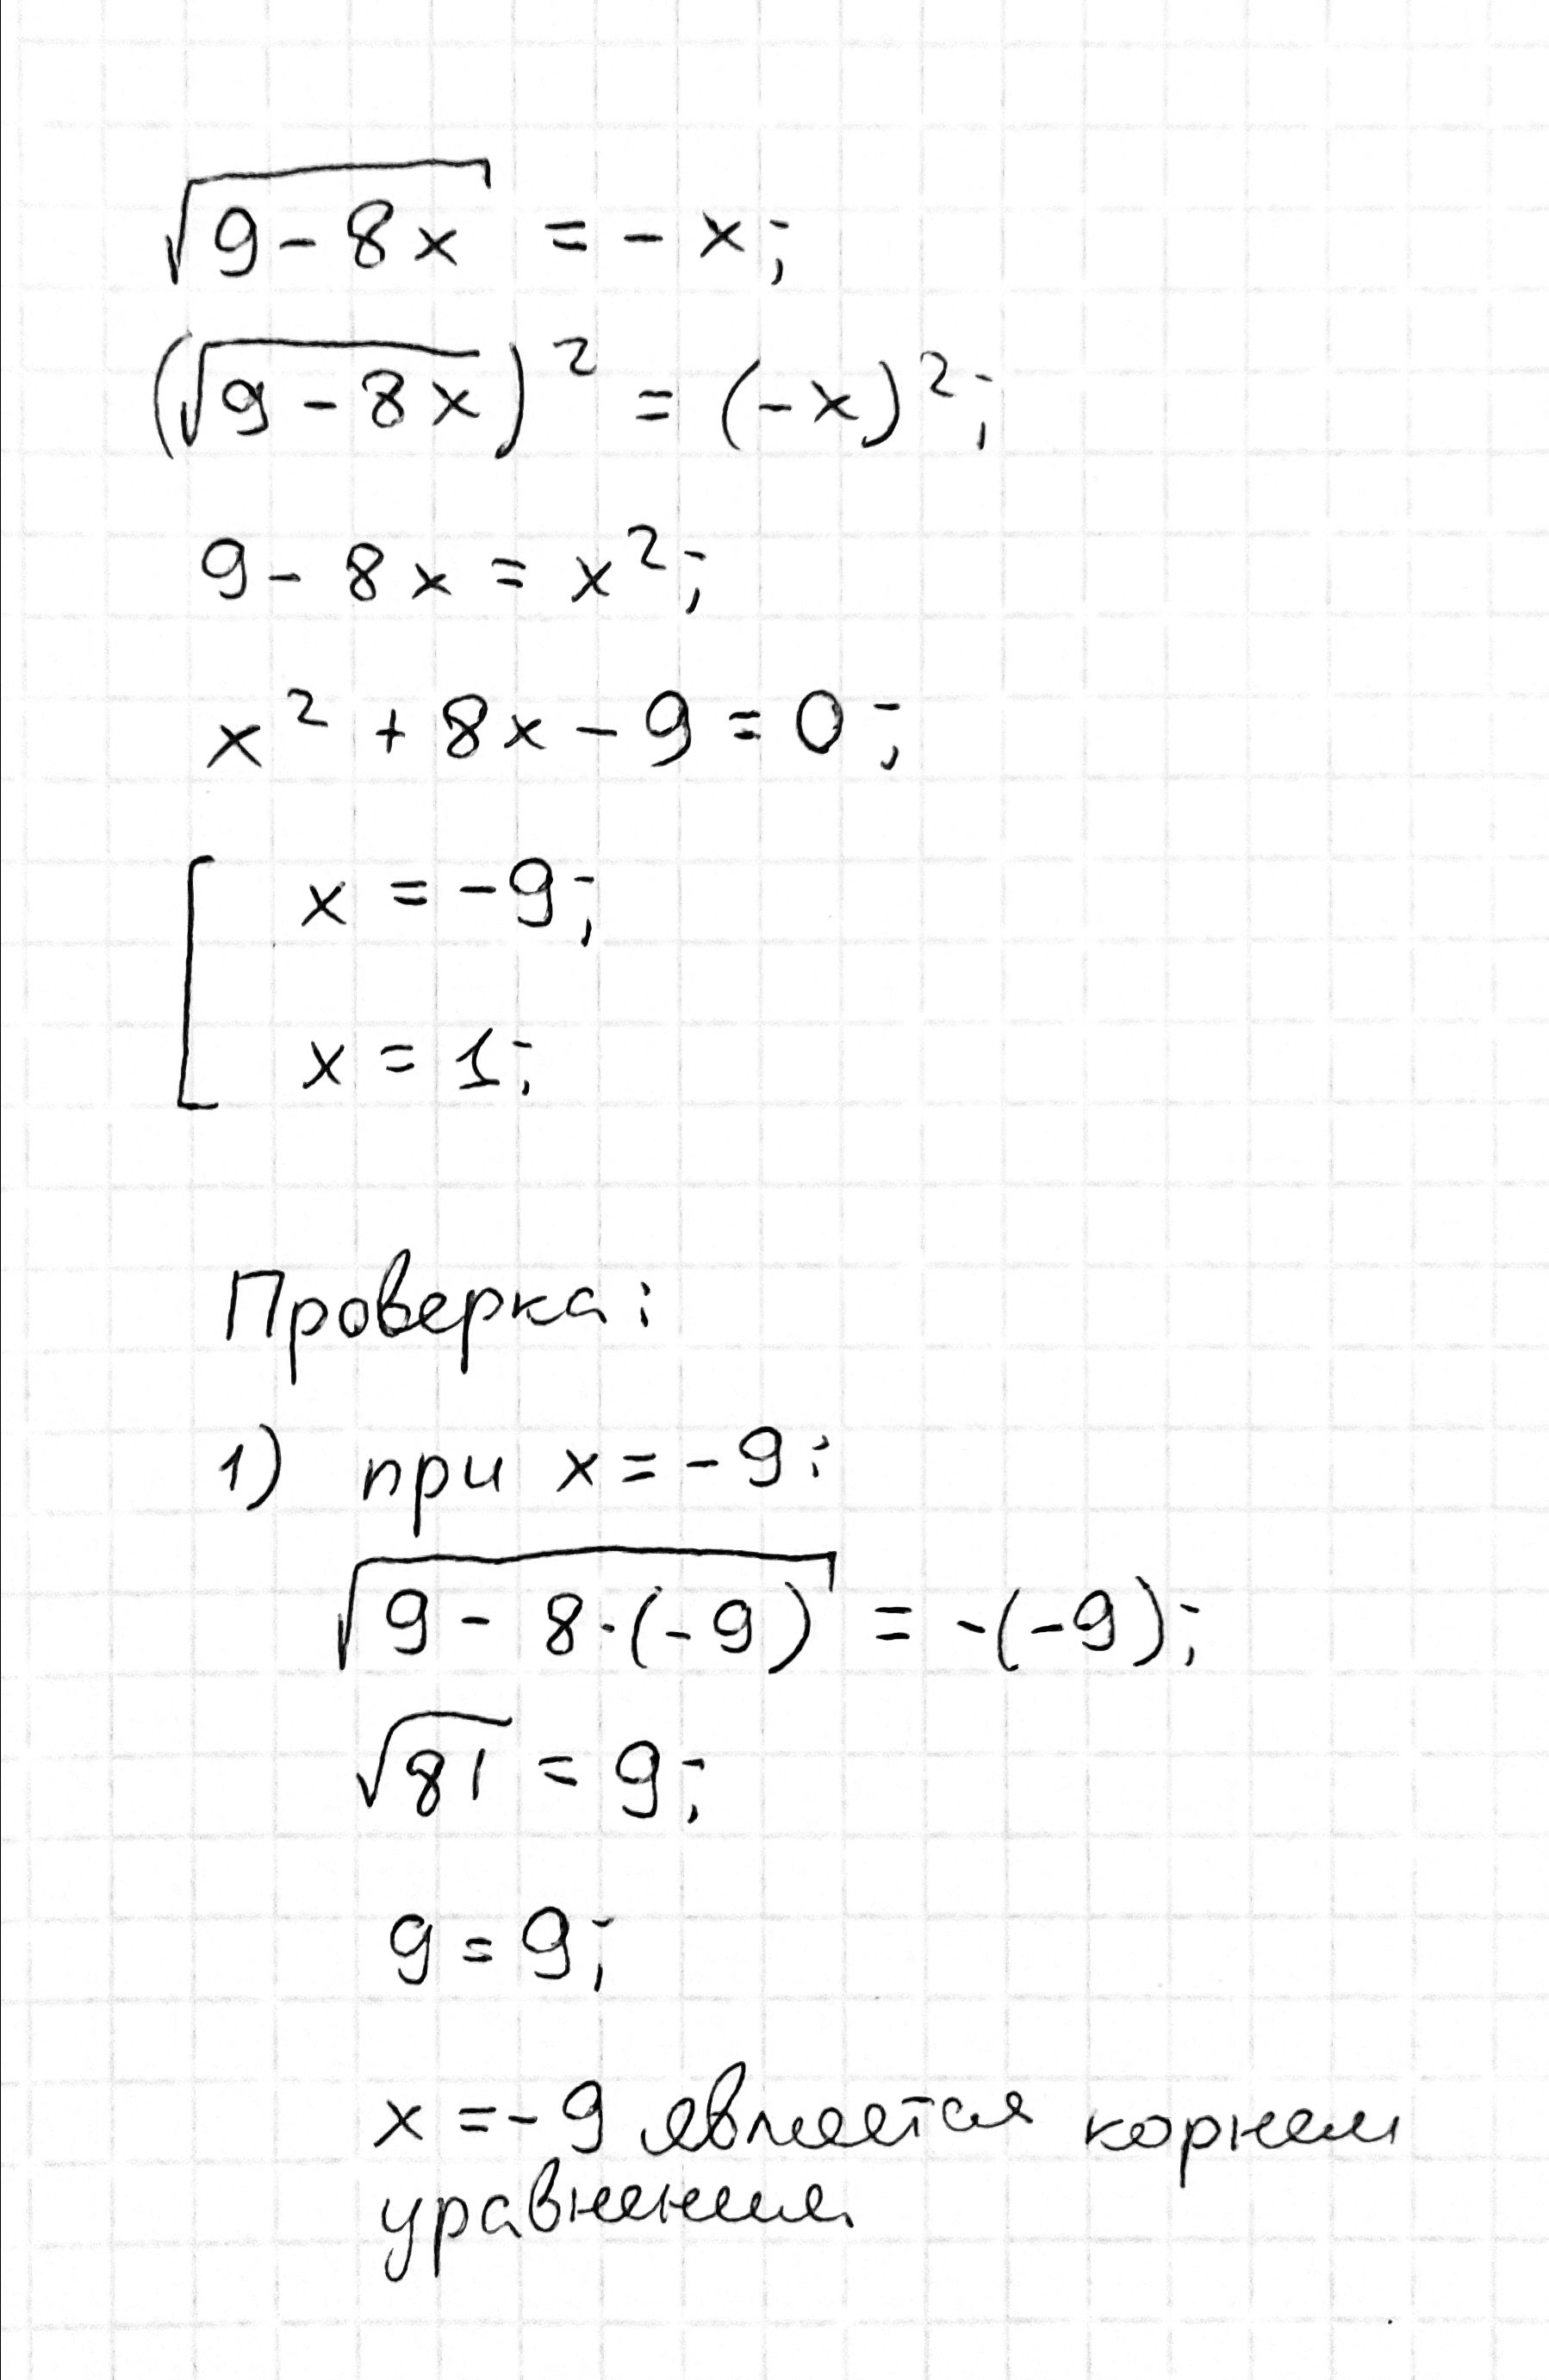 √(9-8x) = -x;
(√(9-8x))² = (-x)²;
9-8x = x²;
x² + 8x - 9 = 0;
[ x = -9;
x = 1;
Проверка:
1) при x = -9:
√(9-8·(-9)) = -(-9);
√81 = 9;
9 = 9;
x = -9 является корнем
уравнения.